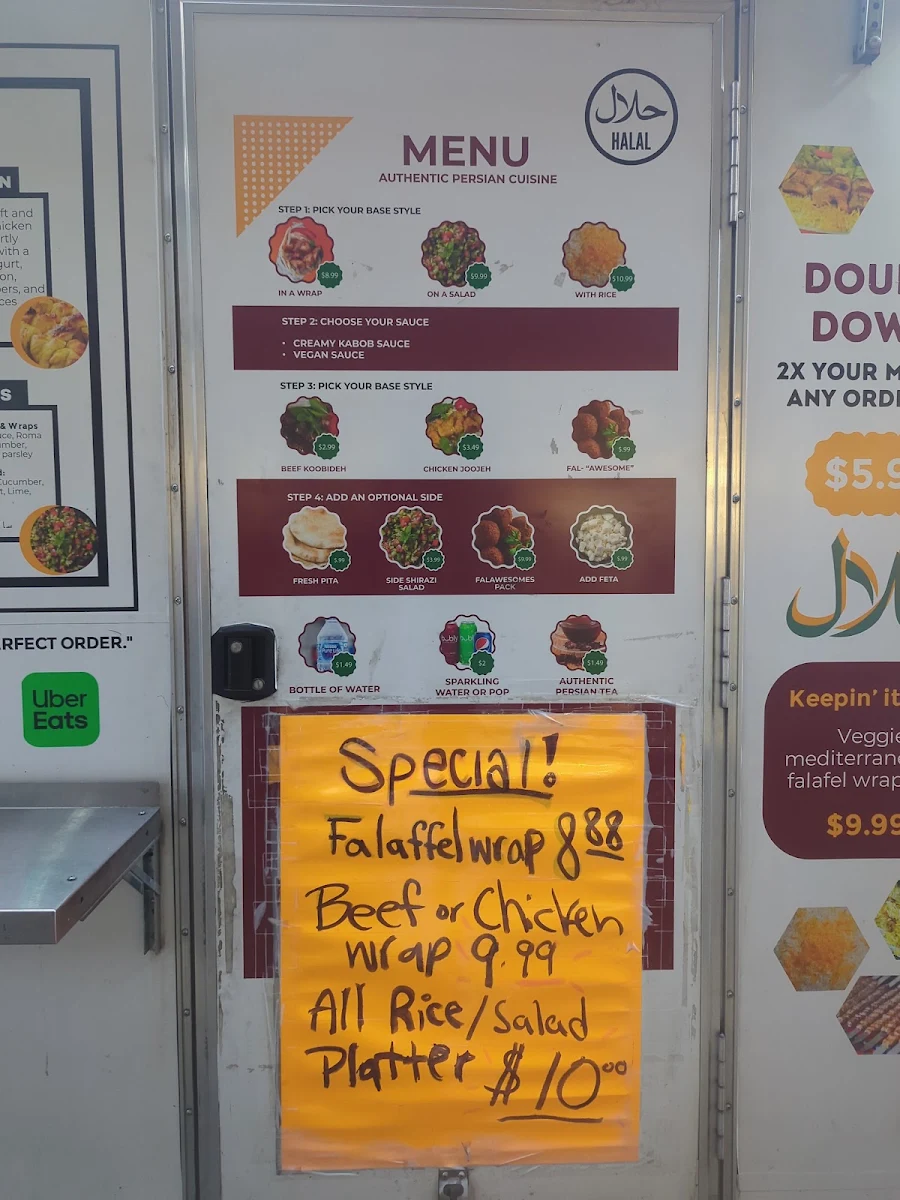 N
ft and
hicken
rtly
with a
gurt,
on,
pers, and
ces
S
& Wraps
uce, Roma
mber,
parsley
d:
Cucumber,
t, Lime,
RFECT ORDER."
Uber
Eats
حلال
HALAL
MENU
AUTHENTIC PERSIAN CUISINE
STEP 1: PICK YOUR BASE STYLE
$8.99 $9.99 $10.99
IN A WRAP ON A SALAD WITH RICE
STEP 2: CHOOSE YOUR SAUCE
• CREAMY KABOB SAUCE
• VEGAN SAUCE
STEP 3: PICK YOUR BASE STYLE
$2.99 $3.49 $.99
BEEF KOOBIDEH CHICKEN JOOJEH FAL- "AWESOME"
STEP 4: ADD AN OPTIONAL SIDE
$.99 $3.99 $9.99 $.99
FRESH PITA SIDE SHIRAZI FALAWESOMES ADD FETA
SALAD PACK
$1.49 $2 $1.49
BOTTLE OF WATER SPARKLING AUTHENTIC
WATER OR POP PERSIAN TEA
Special!
Falaffel wrap 8 88
Beef or Chicken
wrap 9.99
All Rice/Salad
Platter $10 00
DOU
DOW
2X YOUR M
ANY ORD
$5.9
Keepin' it
Veggie
mediterrane
falafel wrap
$9.99